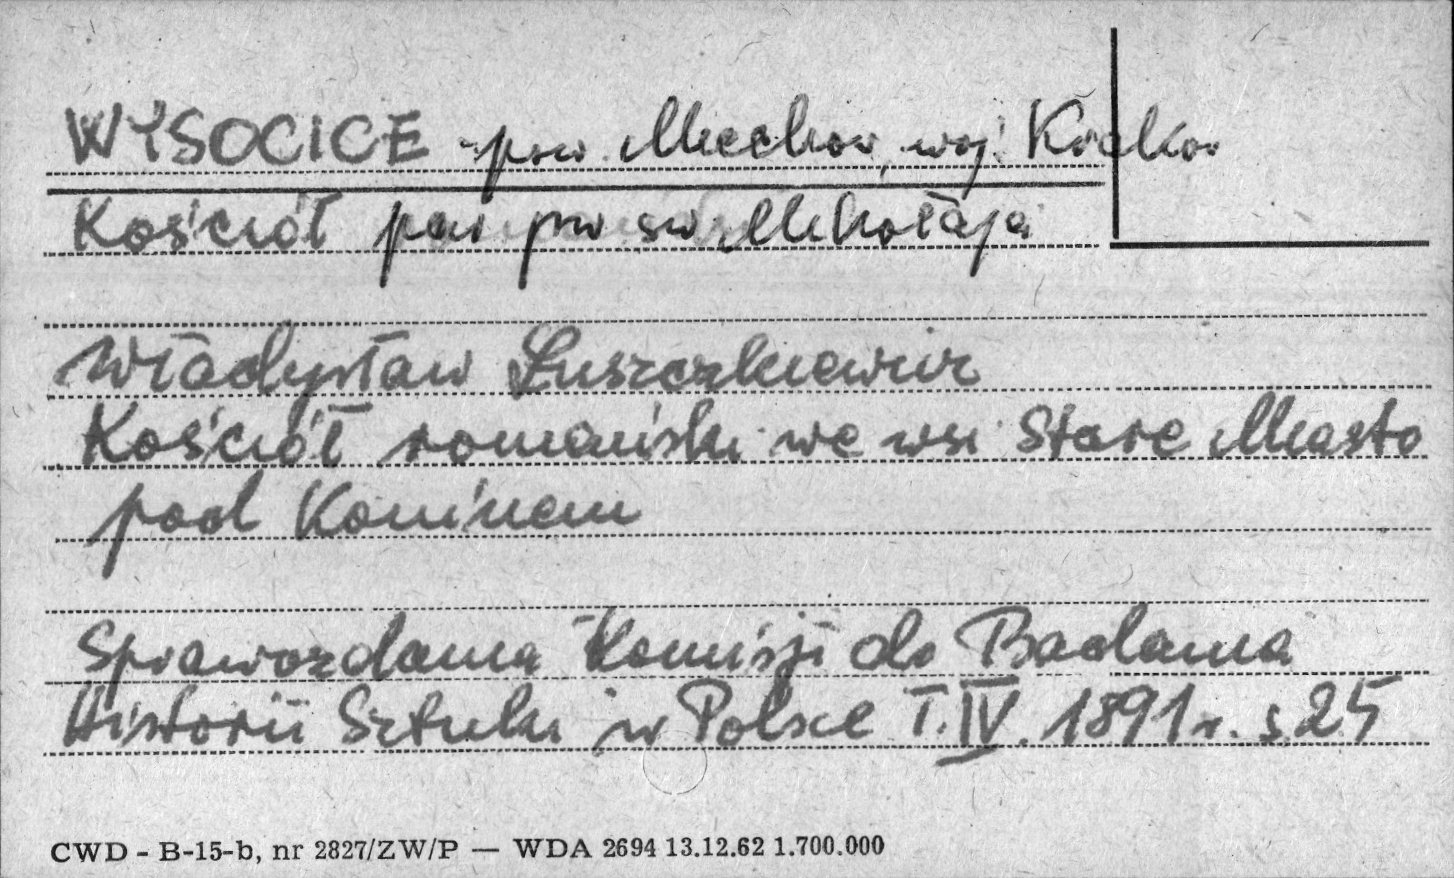 WYSOCICE pow. Miechów, woj. Kraków
Kościół par pw św Mikołaja
Władysław Łuszczkiewicz
Kościół romański we wsi Stare Miasto
pod Koninem
Sprawozdania Komisji do Badania
Historii Sztuki w Polsce T. IV. 1891 r. s. 25
CWD - B-15-b, nr 2827/ZW/P — WDA 2694 13.12.62 1.700.000